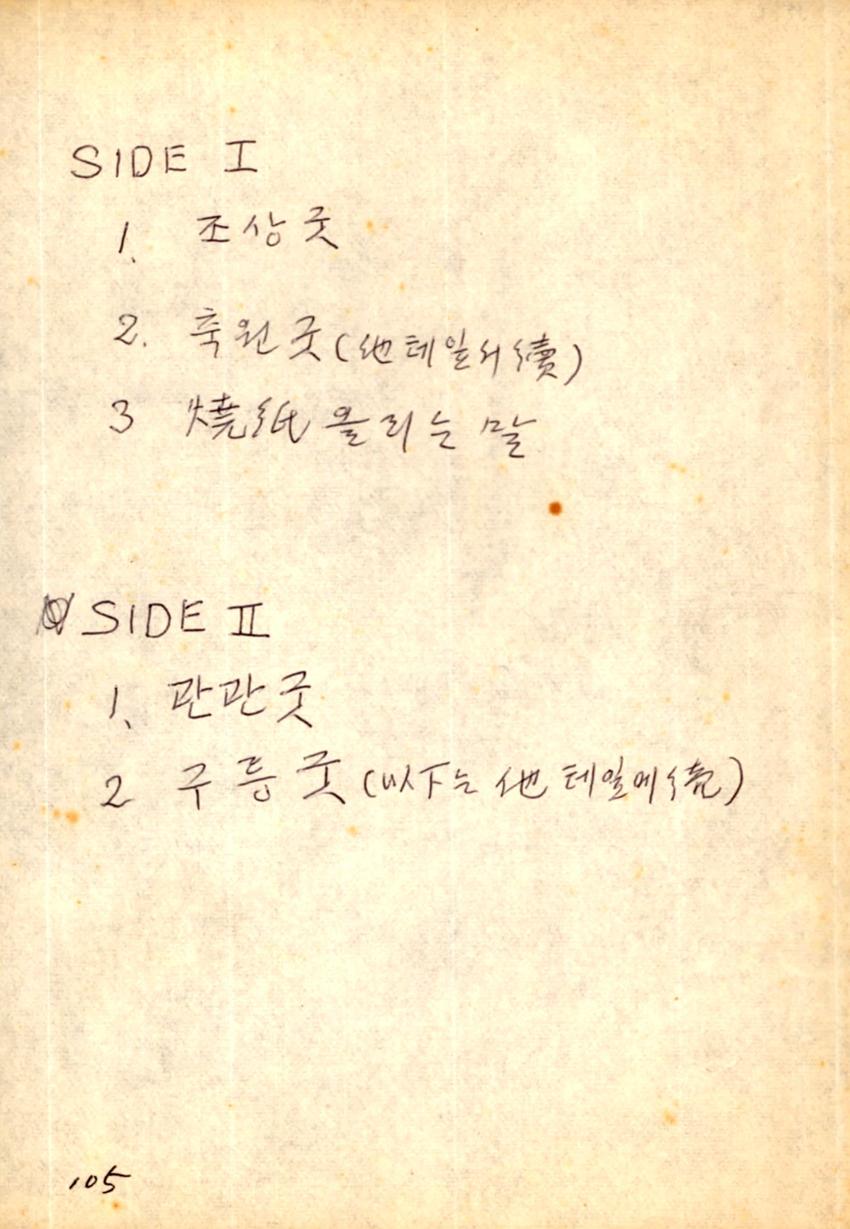 SIDE I
1. 조상굿
2. 축원굿(他테잎서續)
3 燒紙 올리는 말
SIDE II
1. 관관굿
2 구릉굿(以下는 他 테잎에 續)
105